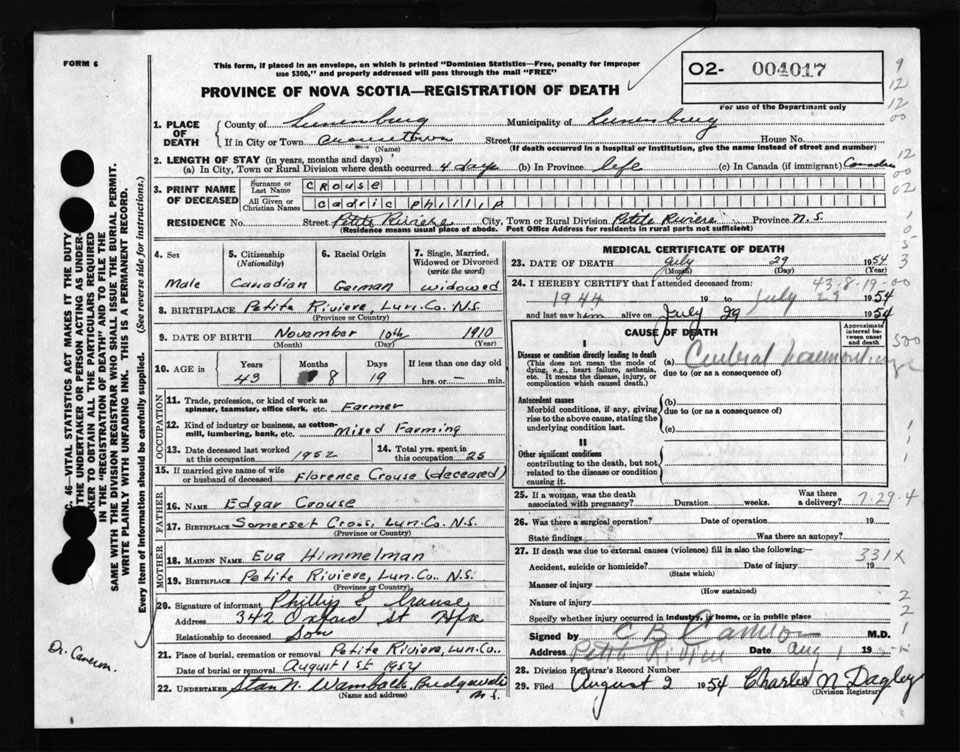 FORM 6
This form, if placed in an envelope, on which is printed "Dominion Statistics—Free, penalty for improper
use $300," and properly addressed will pass through the mail "FREE"
PROVINCE OF NOVA SCOTIA—REGISTRATION OF DEATH
O2- 004017
For use of the Department only
1. PLACE OF DEATH
County of Lunenburg Municipality of Lunenburg
If in City or Town Street House No.
(Name) (If death occurred in a hospital or institution, give the name instead of street and number)
2. LENGTH OF STAY (in years, months and days)
(a) In City, Town or Rural Division where death occurred 4 days (b) In Province life (c) In Canada (if immigrant) Canadian
3. PRINT NAME OF DECEASED
Surname or Last Name Crouse
All Given or Christian Names Cadric Phillip
RESIDENCE No. Street Petite Riviere City, Town or Rural Division Petite Riviere Province N.S.
(Residence means usual place of abode. Post Office Address for residents in rural parts not sufficient)
4. Sex Male
5. Citizenship (Nationality) Canadian
6. Racial Origin German
7. Single, Married, Widowed or Divorced (write the word) widowed
8. BIRTHPLACE Petite Riviere, Lun. Co. N.S.
(Province or Country)
9. DATE OF BIRTH November 10th 1910
(Month) (Day) (Year)
10. AGE in Years 43 Months 8 Days 19 If less than one day hrs. or — min.
OCCUPATION
11. Trade, profession, or kind of work as spinner, teamster, office clerk, etc. Farmer
12. Kind of industry or business, as cotton-mill, lumbering, bank, etc. Mixed Farming
13. Date deceased last worked at this occupation 1952
14. Total yrs. spent in this occupation 25
15. If married give name of wife or husband of deceased Florence Crouse (deceased)
FATHER
16. NAME Edgar Crouse
17. BIRTHPLACE Somerset Cross, Lun. Co. N.S.
(Province or Country)
MOTHER
18. MAIDEN NAME Eva Himmelman
19. BIRTHPLACE Petite Riviere, Lun. Co. N.S.
(Province or Country)
20. Signature of informant Phillip E Crouse
Address 342 Oxford St Hfx
Relationship to deceased Son
21. Place of burial, cremation or removal Petite Riviere, Lun. Co.
Date of burial or removal August 1st 1954
22. UNDERTAKER Stan N. Wamback
(Name and address)
MEDICAL CERTIFICATE OF DEATH
23. DATE OF DEATH July 29 1954
(Month) (Day) (Year)
24. I HEREBY CERTIFY that I attended deceased from: 43-8-19-00
1944 19 to July 29 1954
and last saw him alive on July 29 1954
CAUSE OF DEATH
Approximate interval between onset and death
I
Disease or condition directly leading to death (a) Cerebral
(This does not mean the mode of dying, e.g., heart failure, asthenia, etc. It means the disease, injury, or complication which caused death.)
due to (or as a consequence of)
Antecedent causes
Morbid conditions, if any, giving rise to the above cause, stating the underlying condition last.
(b)
due to (or as a consequence of)
(c)
II
Other significant conditions
contributing to the death, but not related to the disease or condition causing it.
25. If a woman, was the death associated with pregnancy? Duration weeks. Was there a delivery? 7-29-4
26. Was there a surgical operation? Date of operation 19
State findings Was there an autopsy?
27. If death was due to external causes (violence) fill in also the following:— 331X
Accident, suicide or homicide? Date of injury 19
(State which)
Manner of injury
(How sustained)
Nature of injury
Specify whether injury occurred in industry, is home, or in public place
Signed by M.D.
Address Petite Riviere Date Aug 1 19
28. Division Registrar's Record Number
29. Filed August 2 1954 Charles N Dagley
(Division Registrar)
SAME WITH THE DIVISION REGISTRAR WHO SHALL ISSUE THE BURIAL PERMIT.
WRITE PLAINLY WITH UNFADING INK. THIS IS A PERMANENT RECORD.
Every item of information should be carefully supplied. (See reverse side for instructions.)